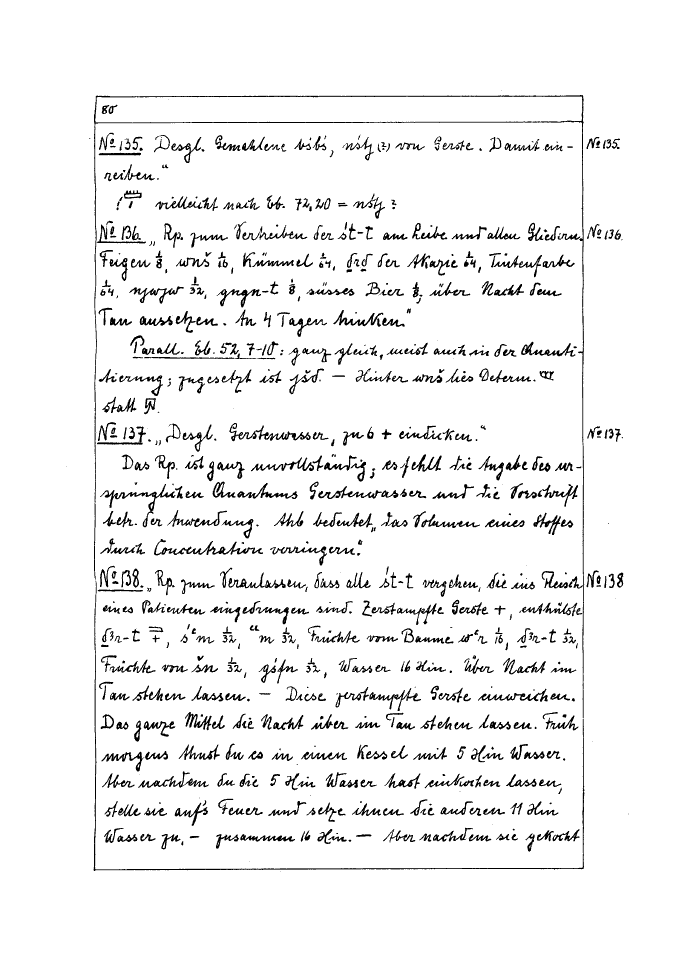 80
No 135. Desgl. Gemahlene bšbš, nšṯj (?) von Gerste. Damit ein- No 135.
reiben."
vielleicht nach Eb. 72,20 = nšṯj ?
No 136. „Rp. zum Vertreiben der śt-t am Leibe und allen Gliedern. No 136.
Feigen 1/8, wnš 1/16, Kümmel 1/64, ḏrḏ der Akazie 1/64, Tintenfarbe
1/64, njwjw 1/32, gngn-t 1/8, süsses Bier 1/8; über Nacht dem
Tau aussetzen. An 4 Tagen trinken."
Parall. Eb. 52, 7-10: ganz gleich, meist auch in der Quanti-
tierung; zugesetzt ist jšd. — Hinter wnš lies Determ.
statt
No 137. „Desgl. Gerstenwasser, zu 6 + eindicken." No 137.
Das Rp. ist ganz unvollständig; es fehlt die Angabe des ur-
sprünglichen Quantums Gerstenwasser und die Vorschrift
betr. der Anwendung. Ahb bedeutet „das Volumen eines Stoffes
durch Concentration verringern".
No 138. „Rp. zum Veranlassen, dass alle śt-t vergehen, die ins Fleisch No 138
eines Patienten eingedrungen sind. Zerstampfte Gerste +, enthülste
ḏꜣr-t +, śꜥm 1/32, ꜥꜥm 1/32, Früchte vom Baume wꜥr 1/16, ḏꜣr-t 1/32,
Früchte von šn 1/32, gśfn 1/32, Wasser 16 Hin. Über Nacht im
Tau stehen lassen. — Diese zerstampfte Gerste einweichen.
Das ganze Mittel die Nacht über im Tau stehen lassen. Früh
morgens thust du es in einen Kessel mit 5 Hin Wasser.
Aber nachdem du die 5 Hin Wasser hast einkochen lassen,
stelle sie auf's Feuer und setze ihnen die anderen 11 Hin
Wasser zu, — zusammen 16 Hin. — Aber nachdem sie gekocht